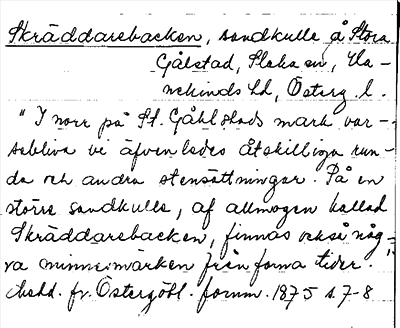 Skräddarebacken, sandkulle å Stora
Gålstad, Slaka sn, Ha-
nekinds hd, Österg. l.
"I norr på St. Gåhlstads mark var-
sebliva vi äfvenledes åtskilliga run-
da och andra stensättningar. På en
större sandkulle, af allmogen kallad
Skräddarebacken, finnas också någ-
ra minnesmärken från forna tider."
Meddd. fr. Östergötl. fornm. 1875 s. 7-8